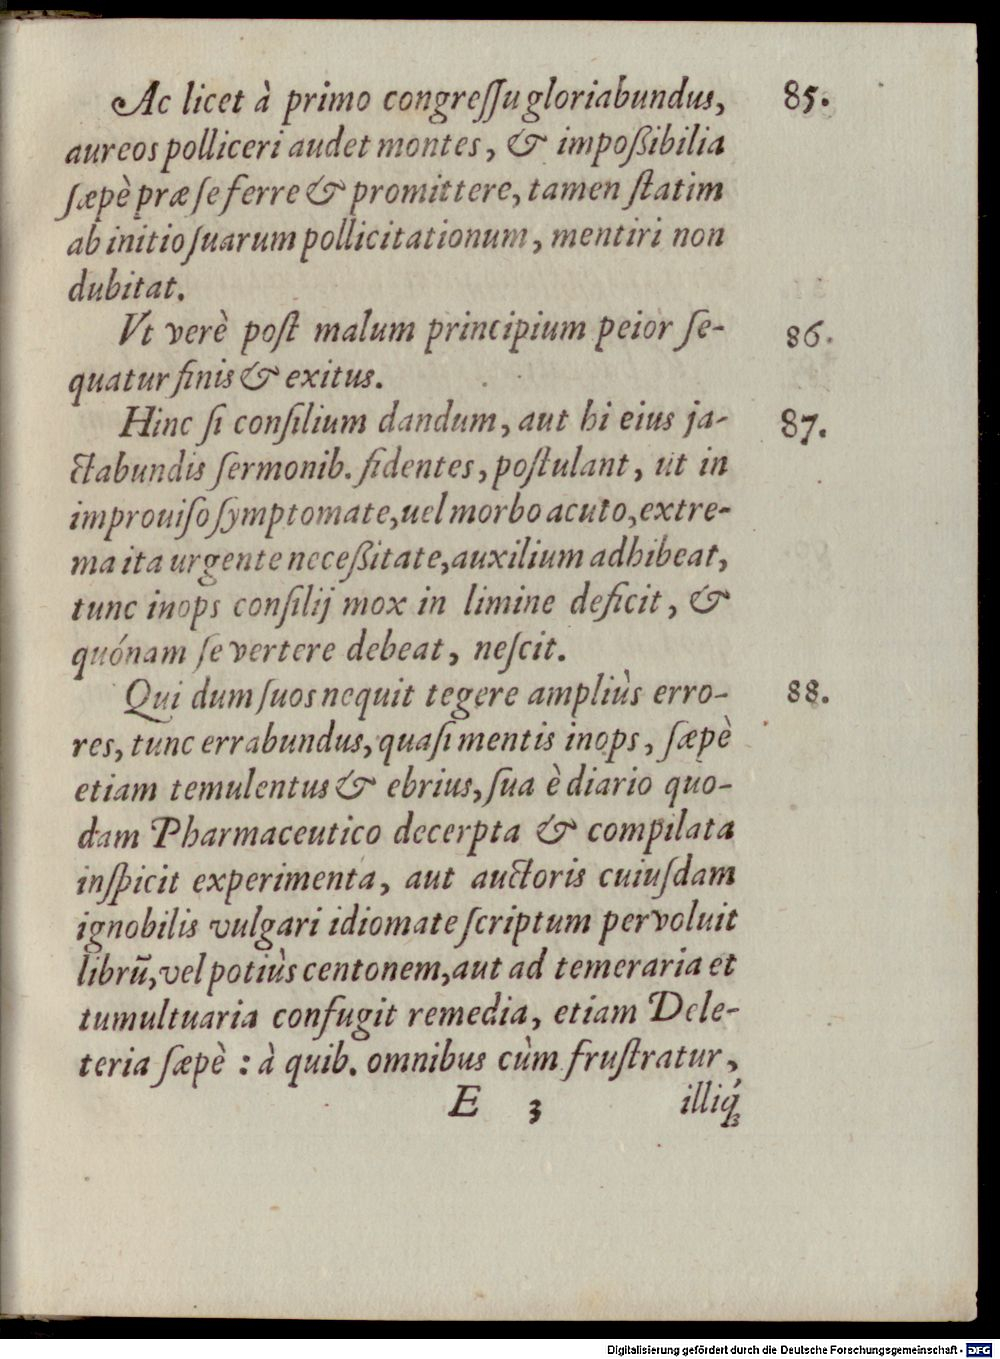 Ac licet à primo congreſſu gloriabundus, 85.
aureos polliceri audet montes, & impoßibilia
ſæpè præ ſe ferre & promittere, tamen ſtatim
ab initio ſuarum pollicitationum, mentiri non
dubitat.
Vt verè poſt malum principium peior ſe- 86.
quatur finis & exitus.
Hinc ſi conſilium dandum, aut hi eius ja- 87.
ctabundis ſermonib. fidentes, poſtulant, ut in
improuiſo ſymptomate, uel morbo acuto, extre-
ma ita urgente neceßitate, auxilium adhibeat,
tunc inops conſilij mox in limine deficit, &
quónam ſe vertere debeat, neſcit.
Qui dum ſuos nequit tegere ampliùs erro- 88.
res, tunc errabundus, quaſi mentis inops, ſæpè
etiam temulentus & ebrius, ſua è diario quo-
dam Pharmaceutico decerpta & compilata
inſpicit experimenta, aut auctoris cuiuſdam
ignobilis vulgari idiomate ſcriptum pervoluit
librū, vel potiùs centonem, aut ad temeraria et
tumultuaria confugit remedia, etiam Dele-
teria ſæpè : à quib. omnibus cùm fruſtratur,
E 3 illiq́;
Digitalisierung gefördert durch die Deutsche Forschungsgemeinschaft - DFG